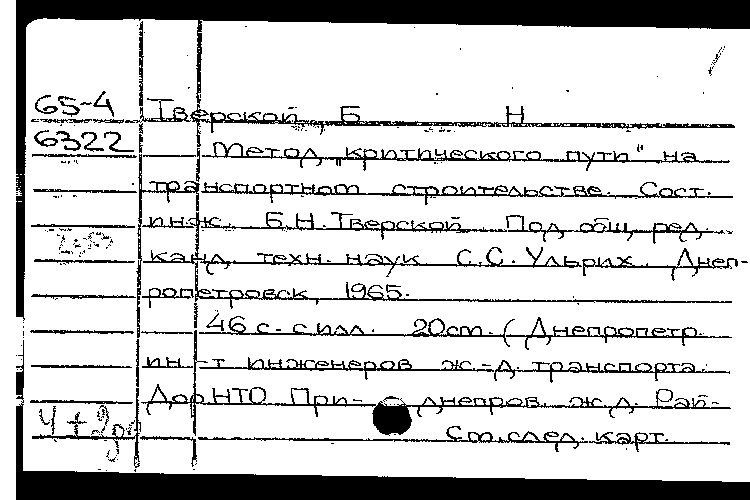 65-4 Тверской, Б Н
6322 Метод „критического пути" на
транспортном строительстве. Сост.
инж. Б.Н. Тверской. Под общ. ред.
канд. техн. наук С.С. Ульрих. Днеп-
ропетровск, 1965.
46 с. с илл. 20 ст. (Днепропетр.
ин-т инженеров ж.-д. транспорта.
ДорНТО При- днепров. ж.д. Рай-
4+2
Ст. след. карт.